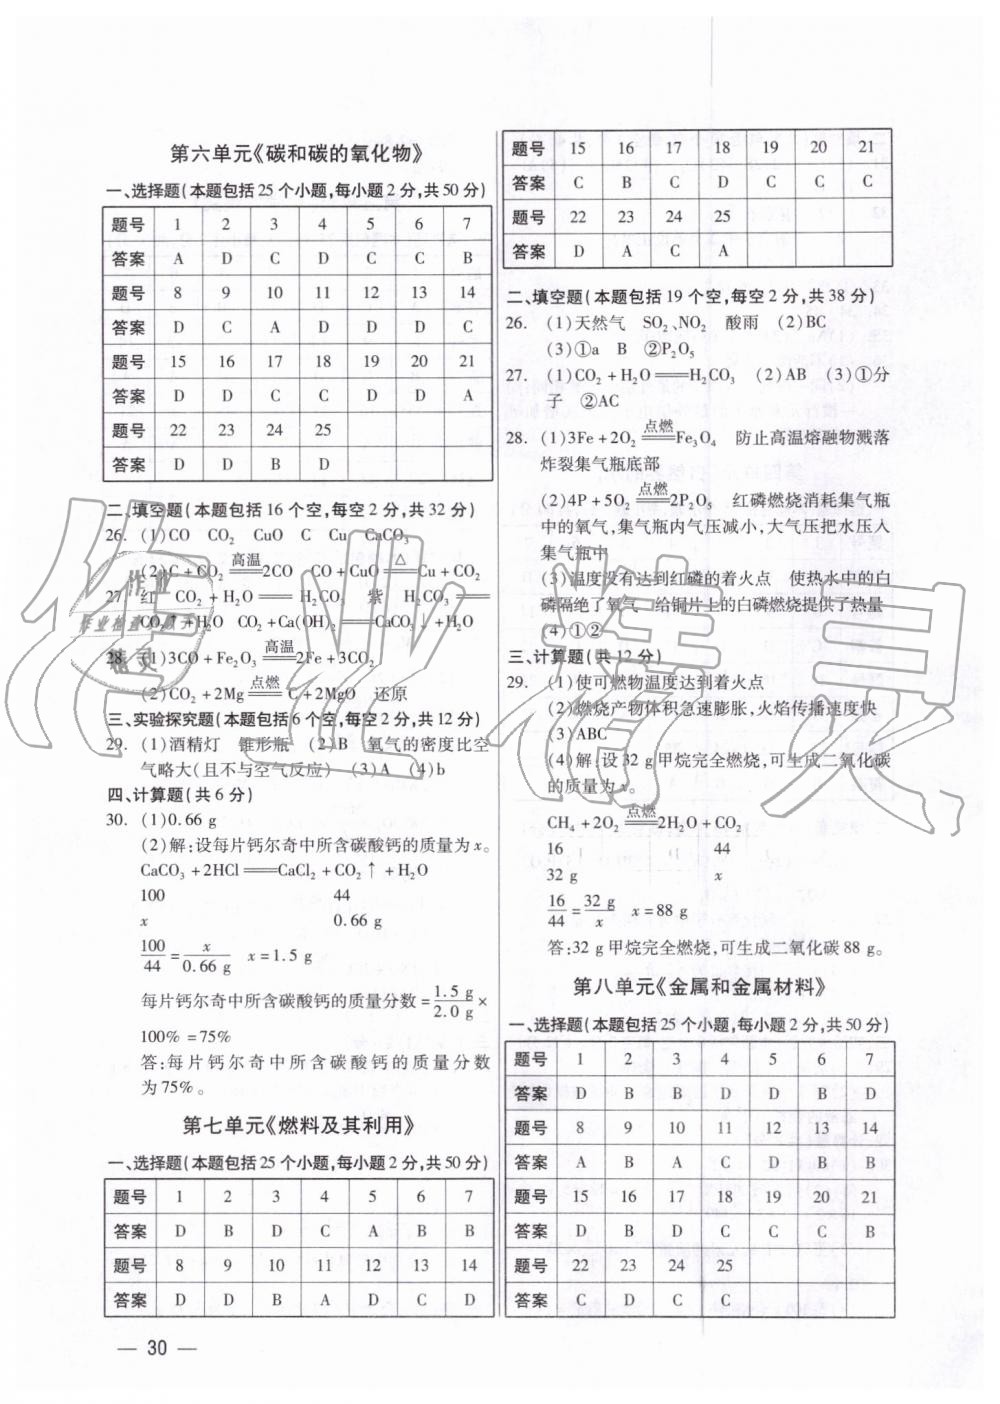 第六单元《碳和碳的氧化物》
一、选择题(本题包括25个小题,每小题2分,共50分)
题号 1 2 3 4 5 6 7
答案 A D C D C C B
题号 8 9 10 11 12 13 14
答案 D C A D D D C
题号 15 16 17 18 19 20 21
答案 D D C C D D A
题号 22 23 24 25
答案 D D B D
二、填空题(本题包括16个空,每空2分,共32分)
26. (1)CO CO₂ CuO C Cu CaCO₃
(2)C+CO₂ 高温══ 2CO CO+CuO △══ Cu+CO₂
27. 红 CO₂+H₂O══H₂CO₃ 紫 H₂CO₃══
CO₂↑+H₂O CO₂+Ca(OH)₂══CaCO₃↓+H₂O
28. (1)3CO+Fe₂O₃ 高温══ 2Fe+3CO₂
(2)CO₂+2Mg 点燃══ C+2MgO 还原
三、实验探究题(本题包括6个空,每空2分,共12分)
29. (1)酒精灯 锥形瓶 (2)B 氧气的密度比空
气略大(且不与空气反应) (3)A (4)b
四、计算题(共6分)
30. (1)0.66 g
(2)解:设每片钙尔奇中所含碳酸钙的质量为x。
CaCO₃+2HCl══CaCl₂+CO₂↑+H₂O
100 44
x 0.66 g
100/44=x/0.66 g x=1.5 g
每片钙尔奇中所含碳酸钙的质量分数=1.5 g/2.0 g×
100%=75%
答:每片钙尔奇中所含碳酸钙的质量分数
为75%。
第七单元《燃料及其利用》
一、选择题(本题包括25个小题,每小题2分,共50分)
题号 1 2 3 4 5 6 7
答案 D B D C A B B
题号 8 9 10 11 12 13 14
答案 D D B A D C D
— 30 —
题号 15 16 17 18 19 20 21
答案 C B C D C C C
题号 22 23 24 25
答案 D A C A
二、填空题(本题包括19个空,每空2分,共38分)
26. (1)天然气 SO₂、NO₂ 酸雨 (2)BC
(3)①a B ②P₂O₅
27. (1)CO₂+H₂O══H₂CO₃ (2)AB (3)①分
子 ②AC
28. (1)3Fe+2O₂ 点燃══ Fe₃O₄ 防止高温熔融物溅落
炸裂集气瓶底部
(2)4P+5O₂ 点燃══ 2P₂O₅ 红磷燃烧消耗集气瓶
中的氧气,集气瓶内气压减小,大气压把水压入
集气瓶中
(3)温度没有达到红磷的着火点 使热水中的白
磷隔绝了氧气 给铜片上的白磷燃烧提供了热量
(4)①②
三、计算题(共12分)
29. (1)使可燃物温度达到着火点
(2)燃烧产物体积急速膨胀,火焰传播速度快
(3)ABC
(4)解:设32 g甲烷完全燃烧,可生成二氧化碳
的质量为x。
CH₄+2O₂ 点燃══ 2H₂O+CO₂
16 44
32 g x
16/44=32 g/x x=88 g
答:32 g甲烷完全燃烧,可生成二氧化碳88 g。
第八单元《金属和金属材料》
一、选择题(本题包括25个小题,每小题2分,共50分)
题号 1 2 3 4 5 6 7
答案 D B B D D B D
题号 8 9 10 11 12 13 14
答案 A B A C D B B
题号 15 16 17 18 19 20 21
答案 D B D C C C B
题号 22 23 24 25
答案 C D C C
作业精灵